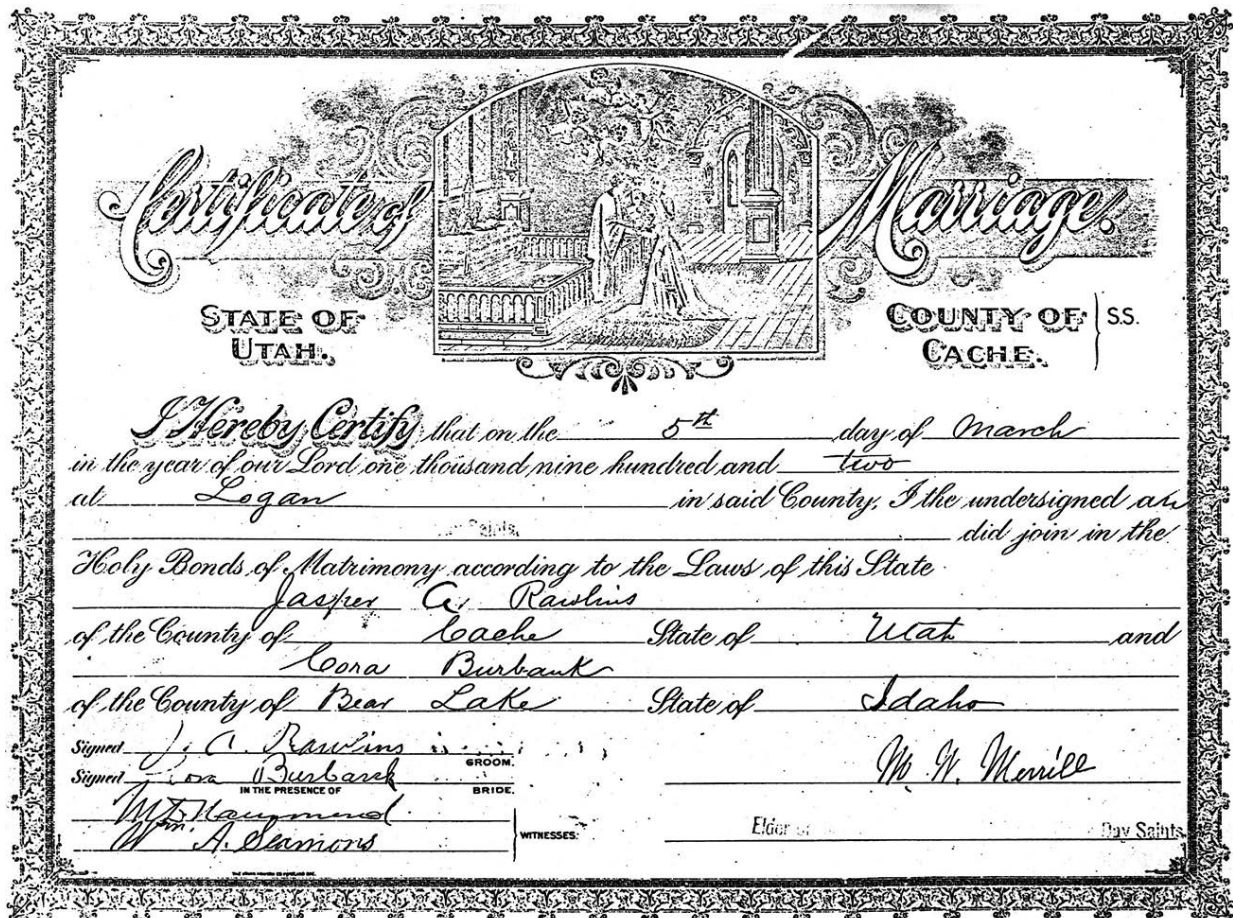 Certificate of Marriage.
STATE OF UTAH.
COUNTY OF CACHE. } S.S.
I Hereby Certify that on the 5th day of March
in the year of our Lord one thousand nine hundred and two
at Logan in said County, I the undersigned an
Saints, did join in the
Holy Bonds of Matrimony according to the Laws of this State
Jasper A. Rawlins
of the County of Cache State of Utah and
Cora Burbank
of the County of Bear Lake State of Idaho
Signed J. A. Rawlins
GROOM.
Signed Cora Burbank
IN THE PRESENCE OF BRIDE.
Hammond
Wm. A. Seamons
WITNESSES.
M. W. Merrill
Elder of Day Saints